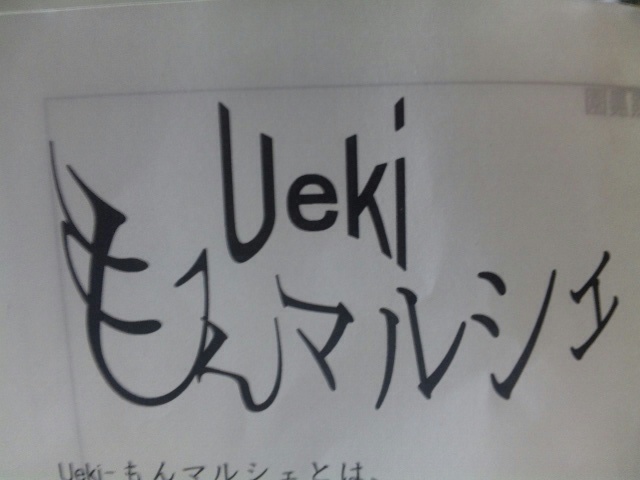 Ueki
もんマルシェ
Ueki-もんマルシェとは、